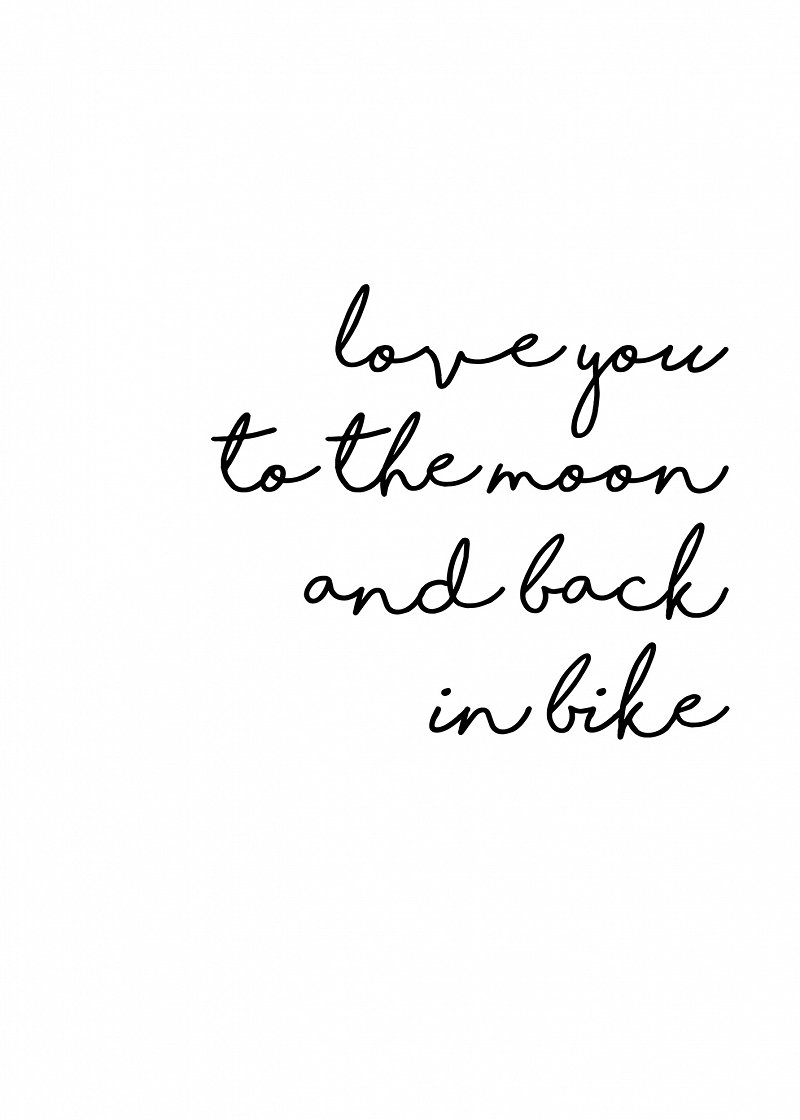 love you
to the moon
and back
in bike